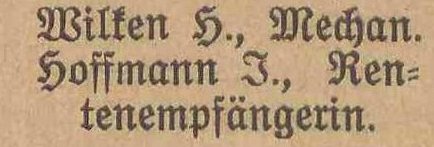 Wilken H., Mechan.
Hoffmann J., Ren-
tenempfängerin.